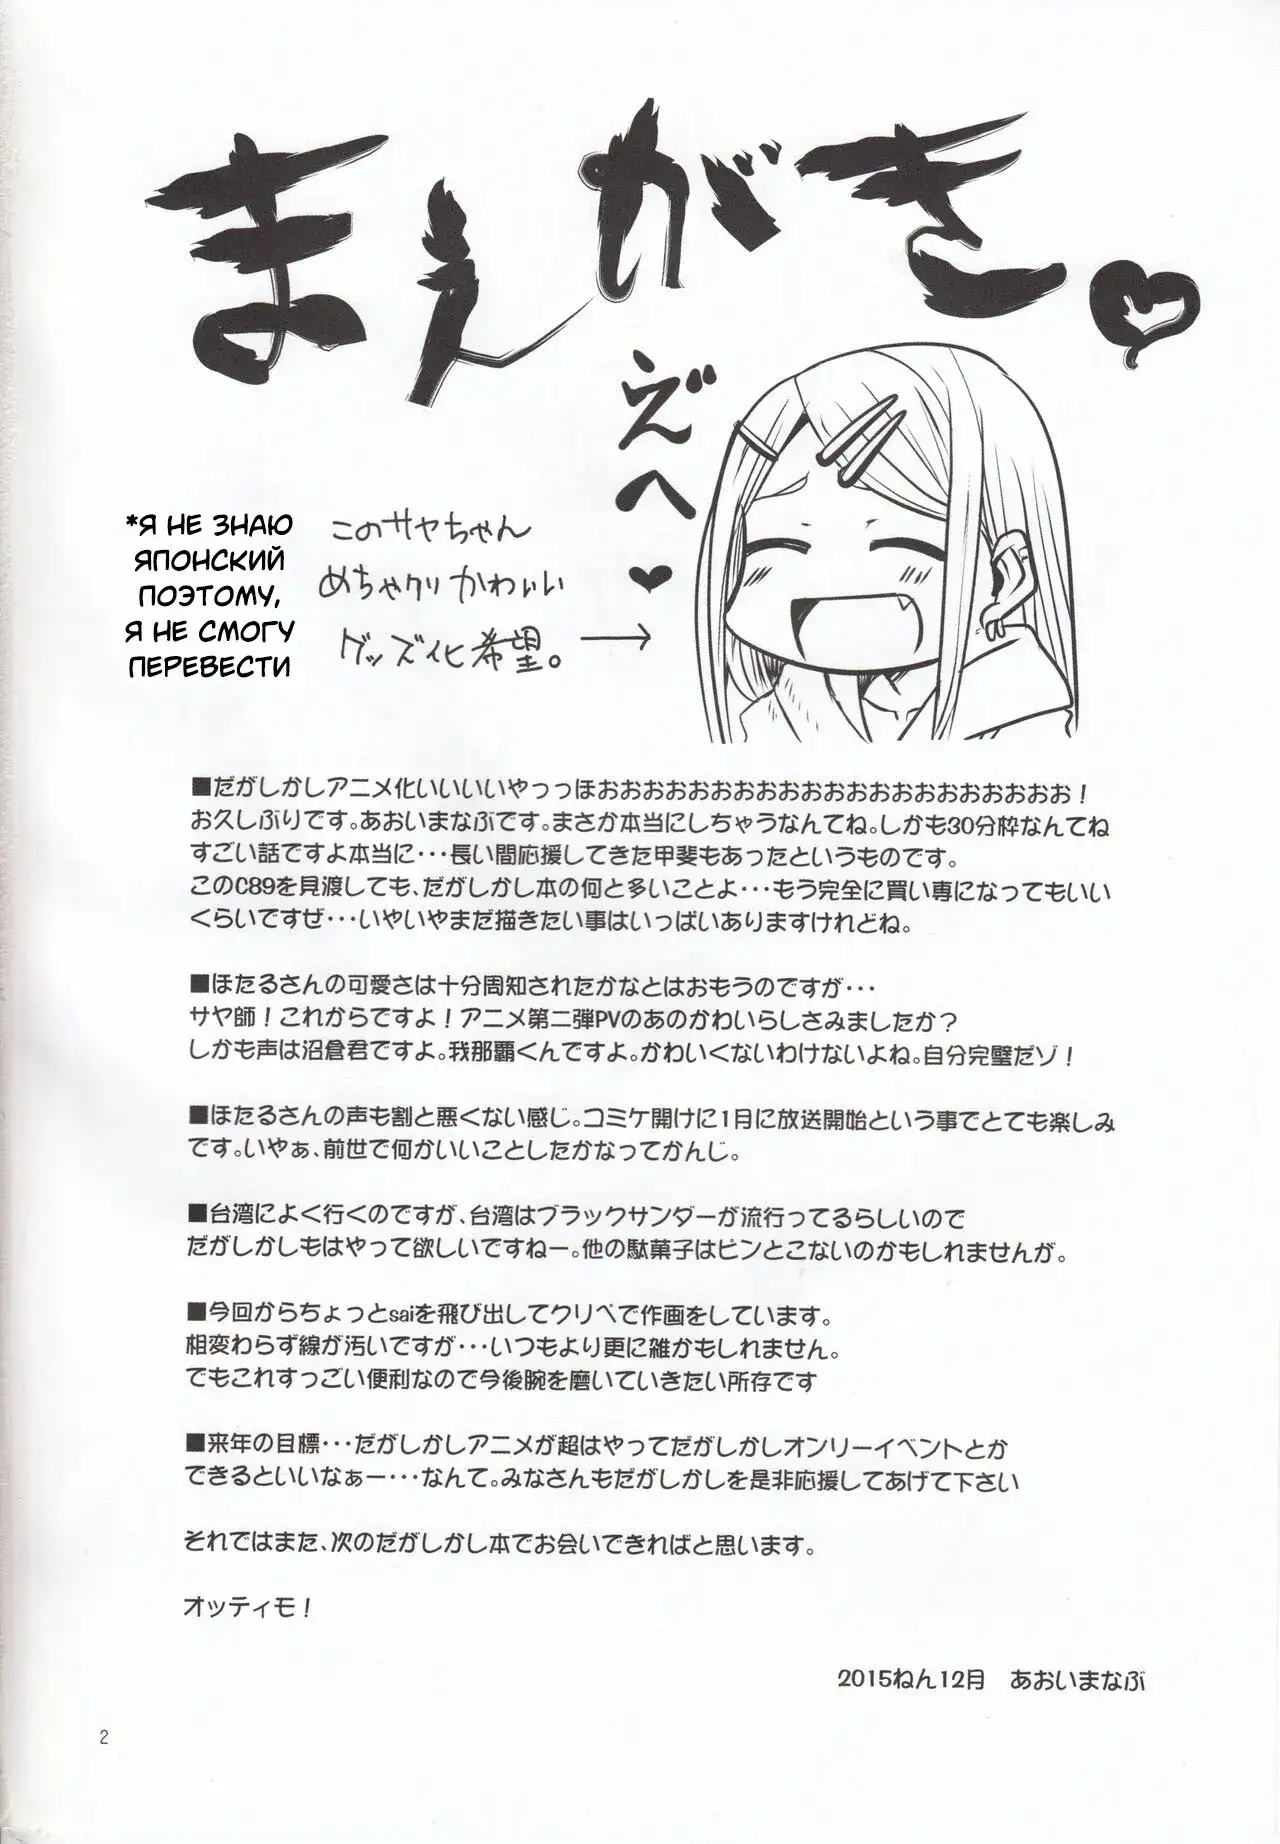 まえがき
えへ
*Я НЕ ЗНАЮ
ЯПОНСКИЙ
ПОЭТОМУ,
Я НЕ СМОГУ
ПЕРЕВЕСТИ
このサヤちゃん
めちゃクリかわいい
グッズ化希望。
■だがしかしアニメ化いいいいやっっほおおおおおおおおおおおおおおおおおおおおお！
お久しぶりです。あおいまなぶです。まさか本当にしちゃうなんてね。しかも30分枠なんてね
すごい話ですよ本当に・・・長い間応援してきた甲斐もあったというものです。
このC89を見渡しても、だがしかし本の何と多いことよ・・・もう完全に買い専になってもいい
くらいですぜ・・・いやいやまだ描きたい事はいっぱいありますけれどね。
■ほたるさんの可愛さは十分周知されたかなとはおもうのですが・・・
サヤ師！これからですよ！アニメ第二弾PVのあのかわいらしさみましたか？
しかも声は沼倉君ですよ。我那覇くんですよ。かわいくないわけないよね。自分完璧だゾ！
■ほたるさんの声も割と悪くない感じ。コミケ開けに1月に放送開始という事でとても楽しみ
です。いやぁ、前世で何かいいことしたかなってかんじ。
■台湾によく行くのですが、台湾はブラックサンダーが流行ってるらしいので
だがしかしもはやって欲しいですねー。他の駄菓子はピンとこないのかもしれませんが。
■今回からちょっとsaiを飛び出してクリペで作画をしています。
相変わらず線が汚いですが・・・いつもより更に雑かもしれません。
でもこれすっごい便利なので今後腕を磨いていきたい所存です
■来年の目標・・・だがしかしアニメが超はやってだがしかしオンリーイベントとか
できるといいなぁー・・・なんて。みなさんもだがしかしを是非応援してあげて下さい
それではまた、次のだがしかし本でお会いできればと思います。
オッティモ！
2015ねん12月　あおいまなぶ
2